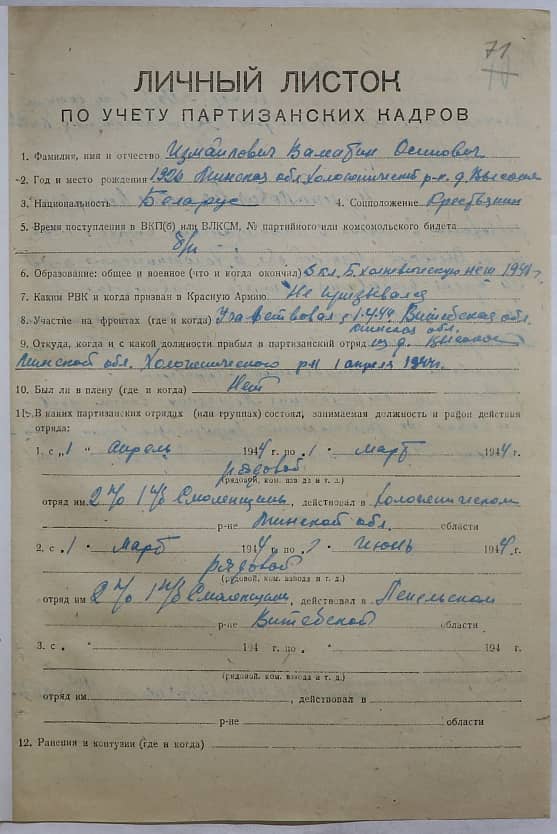 71
ЛИЧНЫЙ ЛИСТОК
ПО УЧЕТУ ПАРТИЗАНСКИХ КАДРОВ
1. Фамилия, имя и отчество Измайлович Осипович
2. Год и место рождения 1926 Минская обл. Холопенический р-н. д.
3. Национальность Беларус 4. Соцположение
5. Время поступления в ВКП(б) или ВЛКСМ, № партийного или комсомольского билета
б/п
6. Образование: общее и военное (что и когда окончил) 1941г.
7. Каким РВК и когда призван в Красную Армию Не призывался
8. Участие на фронтах (где и когда) Участвовал с 1.4.44 Витебская обл.
Минская обл.
9. Откуда, когда и с какой должности прибыл в партизанский отряд из д.
Минской обл. Холопенического р-н 1 апреля 1944г.
10. Был ли в плену (где и когда) Нет
11. В каких партизанских отрядах (или группах) состоял, занимаемая должность и район действия
отряда:
1. с „1 " Апрель 1944 г. по „1 " март 1944 г.
рядовой
(рядовой, ком. взвода и т. д.)
отряд им. Смоленщина, действовал в Холопеническом
р-не Минской обл. области
2. с „1 " Март 1944 г. по „ " июнь 1944 г.
рядовой
(рядовой, ком. взвода и т. д.)
отряд им. Смоленщина, действовал в Лепельском
р-не Витебской области
3. с „ " 194 г. по „ " 194 г.
(рядовой, ком. взвода и т. д.)
отряд им. , действовал в
р-не области
12. Ранения и контузии (где и когда)